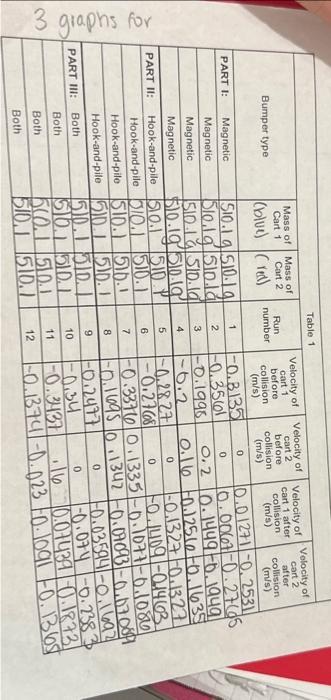 3 graphs for
Table 1
Bumper type Mass of Cart 1 (blue) Mass of Cart 2 (red) Run number Velocity of cart 1 before collision (m/s) Velocity of cart 2 before collision (m/s) Velocity of cart 1 after collision (m/s) Velocity of cart 2 after collision (m/s)
PART I: Magnetic 510.1g 510.1g 1 -0.3135 0 0.01271 -0.2531
Magnetic 510.1g 510.1g 2 -0.3561 0 -0.2765
Magnetic 510.1g 510.1g 3 -0.1996 0.2 0.1449 -0.1940
Magnetic 510.1g 510.1g 4 -0.2 0.16 -0.1256 -0.1635
PART II: Hook-and-pile 510.1 510.1 5 -0.2827 0 -0.1327 -0.1327
Hook-and-pile 510.1 510.1 6 -0.2768 0 -0.1409 -0.1403
Hook-and-pile 510.1 510.1 7 0.1335 -0.1077 -0.1080
Hook-and-pile 510.1 510.1 8 -0.1695 0.1342
PART III: Both 510.1 510.1 9 -0.2477 0 -0.03594 -0.1692
Both 510.1 510.1 10 -0.34 0 -0.074 -0.2383
Both 510.1 510.1 11 -0.3437 .16 0.07439 -0.1873
Both 510.1 510.1 12 -0.1374 0.023 -0.1365